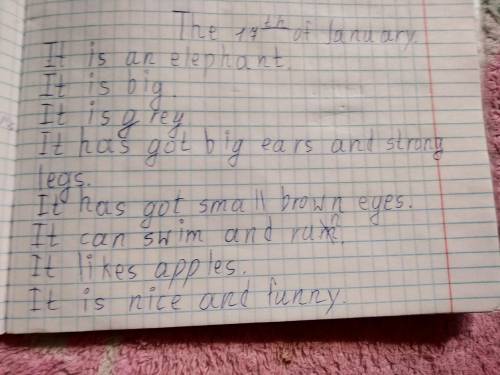 The 17th of January.
It is an elephant.
It is big.
It is grey
It has got big ears and strong
legs.
It has got small brown eyes.
It can swim and run.
It likes apples.
It is nice and funny.